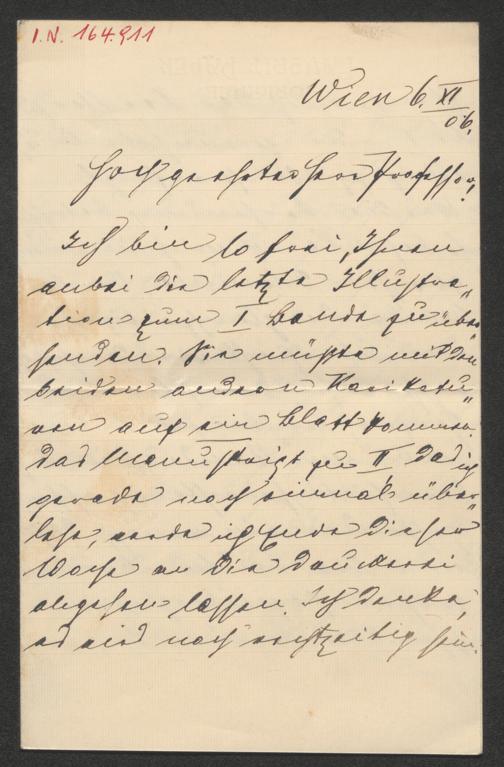 I.N. 164.911
Wien 6. XI
06.
Hochgeehrter Herr Professor!
Ich bin so frei, Ihnen
anbei die letzte Illustra„
tion zum I Bande zu über„
senden. Sie müßte mit den
beiden andern Karikatu„
ren auf ein Blatt kommen.
Das Manuskript zu II das ich
gerade noch einmal über„
lese, werde ich Ende dieser
Woche an die Druckerei
abgehen lassen. Ich denke,
es wird noch rechtzeitig sein.